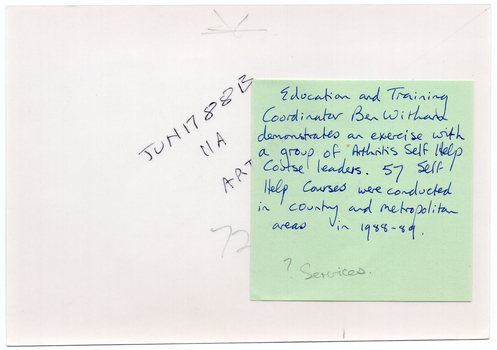 JUN 17 88 B
11A
ART
Education and Training
Coordinator Ben Withand
demonstrates an exercise with
a group of Arthritis Self Help
Course leaders. 57 Self
Help Courses were conducted
in country and metropolitan
areas in 1988-89.
? Services.